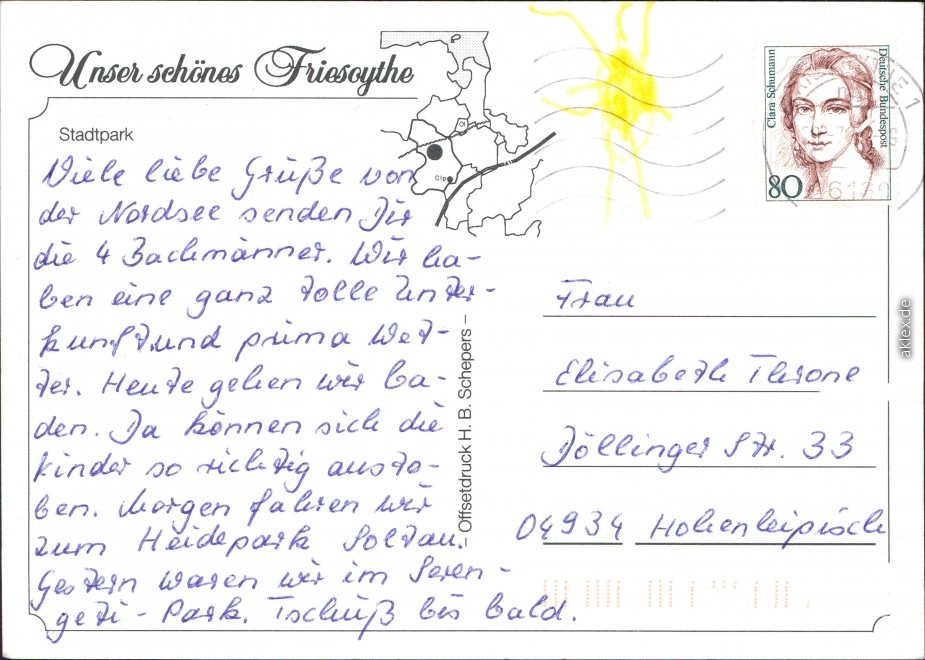 Unser schönes Friesoythe
Stadtpark
Viele liebe Grüße von
der Nordsee senden Dir
die 4 Bachmänner. Wir ha-
ben eine ganz tolle Unter-
kunft und prima Wet-
ter. Heute gehen wir ba-
den. Da können sich die
Kinder so richtig austo-
ben. Morgen fahren wir
zum Heidepark Soltau.
Gestern waren wir im Seren-
geti-Park. Tschüß bis bald.
– Offsetdruck H. B. Schepers –
Ol
Clp
Clara Schumann
Deutsche Bundespost
80
Frau
Elisabeth Throne
Döllinger Str. 33
04934 Hohenleipisch
aklex.de